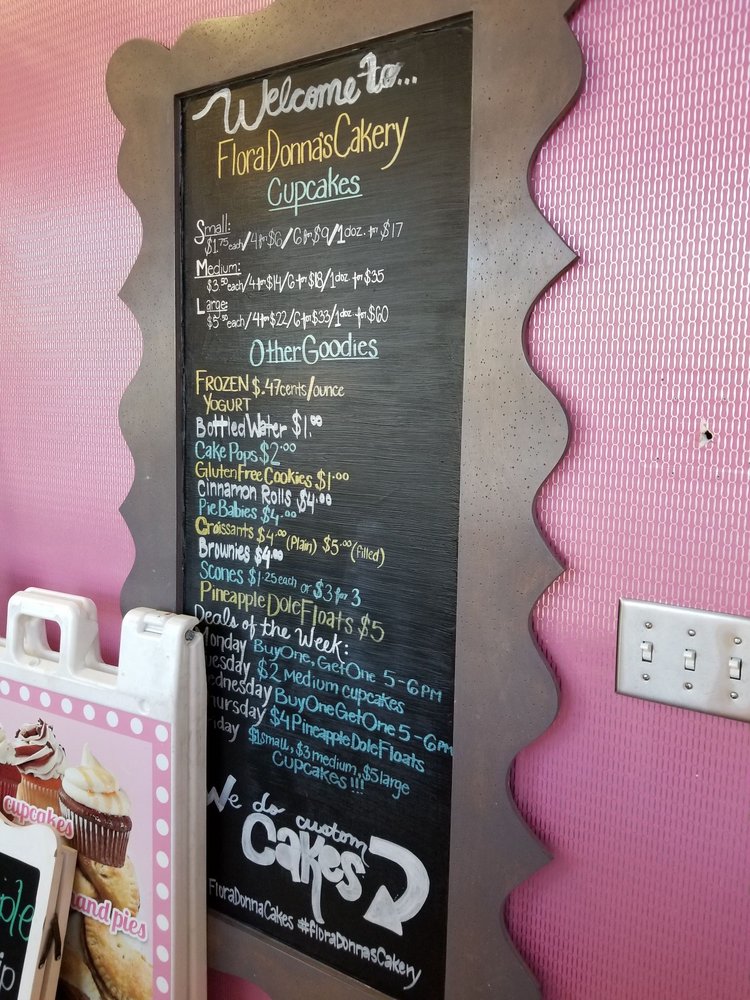 Welcome to...
Flora Donna's Cakery
Cupcakes
Small:
$1.75 each/4 for $6/6 for $9/1 doz. for $17
Medium:
$3.50 each/4 for $14/6 for $18/1 doz for $35
Large:
$5.50 each/4 for $22/6 for $33/1 doz for $60
Other Goodies
FROZEN $.47cents/ounce
YOGURT
Bottled Water $1.00
Cake Pops $2.00
Gluten Free Cookies $1.00
Cinnamon Rolls $4.00
Pie Babies $4.00
Croissants $4.00 (Plain) $5.00 (filled)
Brownies $4.00
Scones $1.25 each or $3 for 3
Pineapple Dole Floats $5
Deals of the Week:
Monday Buy One, Get One 5-6 PM
uesday $2 Medium cupcakes
ednesday Buy One Get One 5-6PM
hursday $4 Pineapple Dole Floats
iday $1 small, $3 medium, $5 large
Cupcakes!!!
We do custom
Cakes
FloraDonnaCakes #floraDonnasCakery
cupcakes
hand pies
ple
ip